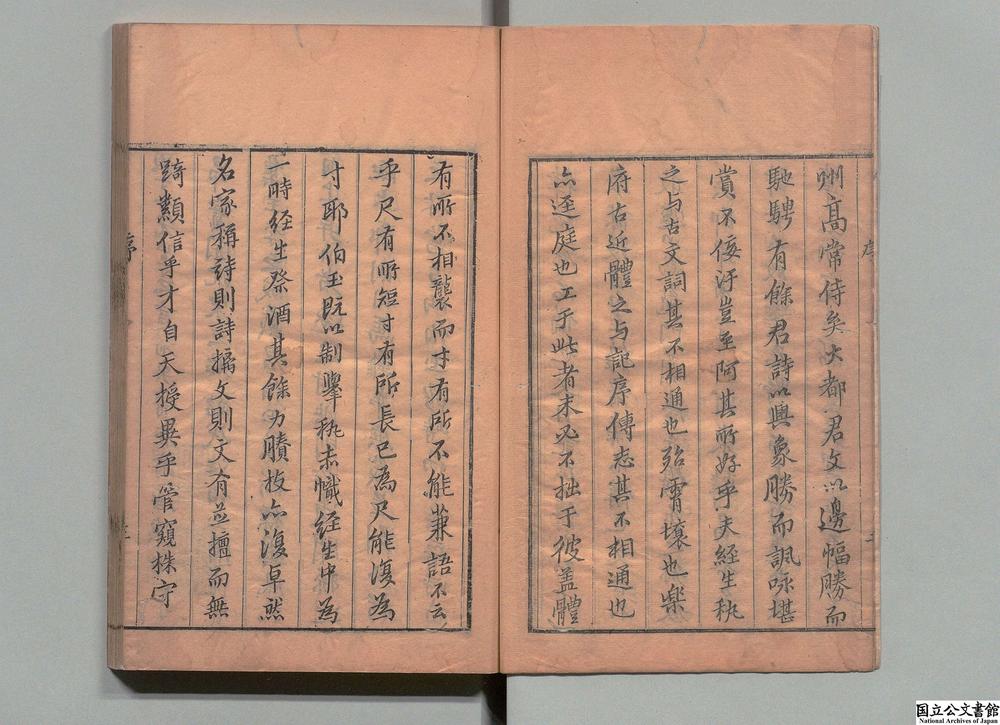 州高常侍矣大都君文以邊幅勝而
馳騁有餘君詩以興象勝而諷咏堪
賞不佞汙豈至阿其所好乎夫經生秇
之与古文詞其不相通也殆霄壤也樂
府古近體之与記序傳志其不相通也
亦逕庭也工于此者未必不拙于彼盖體
有所不相襲而寸有所不能兼語不云
乎尺有所短寸有所長已為尺能復為
寸耶伯玉既以制舉秇赤幟经生中為
一時经生祭酒其餘力賸技亦復卓然
名家稱詩則詩摛文則文有並擅而無
踦纇信乎才自天授異乎管窺株守
序
序
国立公文書館
National Archives of Japan